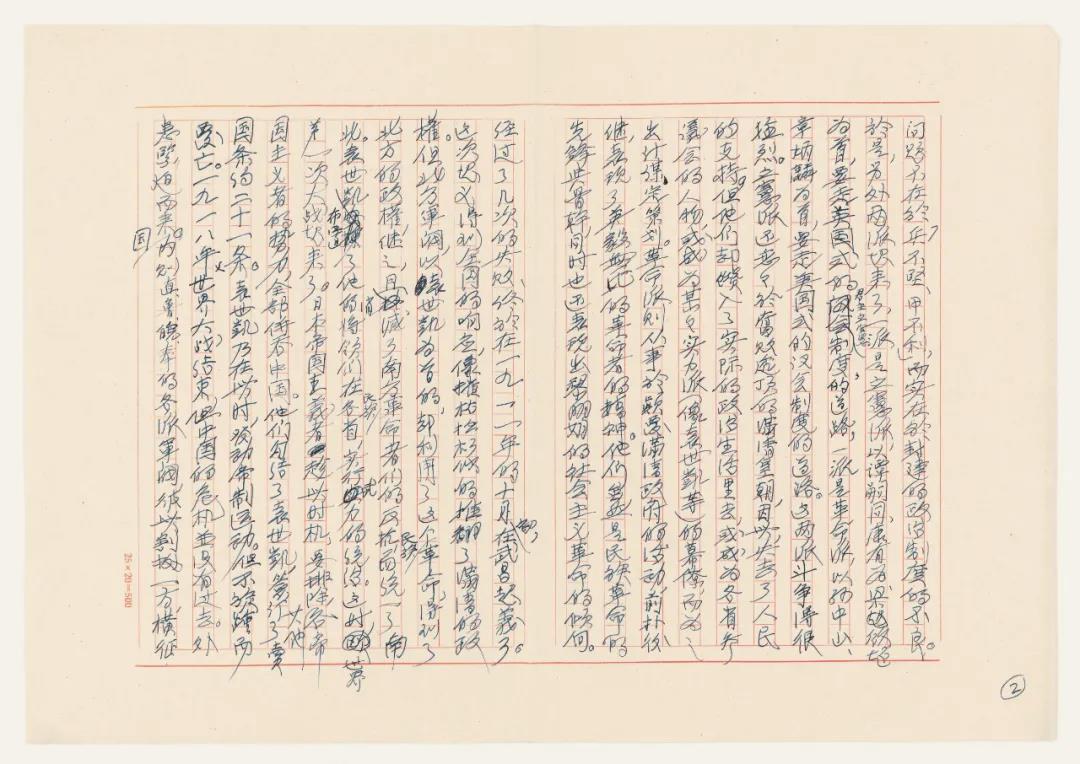 问题不在於兵不坚,甲不利,而实在於封建的政治制度的不良。
於是另外两派起来了,一派是立宪派,以谭嗣同康有为梁启超
为首,要走英国式的君主立宪的道路,一派是革命派,以孙中山、
章炳麟为首,要走美国式的议会制度的道路。这两派斗争得很
猛烈。立宪派还忠於腐败透顶的满清皇朝,因此失去了人民
的支持。但他们却钻入了实际的政治生活里去,或成为各省参
议会的人物,或成为某某实力派(像袁世凯等)的幕僚,而为之
出计谋策划。革命派则从事於颠覆满清政府的活动,前扑后
继,表现了英勇无比的革命者的精神。他们是民族革命的
先锋与骨干,同时也还表现出鲜明的社会主义革命的倾向。
经过了几次的失败,终於在一九一一年的十月,在武昌起义了。
这次起义得到全国的响应,像摧枯拉朽似的推翻了满清的政
权。但北方军阀以袁世凯为首的,却利用了这个革命,得到了
北方的政权,继之,且消灭了南方革命者们的反抗而统一了南
北。袁世凯布置了他的将领们在各省,实行武力的统治。这时世界
第一次大战起来了。日本帝国主义者趁此时机,要排除各帝
国主义者的势力,全部侵吞中国。他们勾结了袁世凯,签订了卖
国条约二十一条。袁世凯乃在此时,发动帝制运动。但不旋踵而
灭亡。一九一八年世界大战结束,但中国的危机并没有过去。外
患紧迫而来。国内则直鲁皖奉的各派军阀彼此割据一方,横征
25×20=500
②